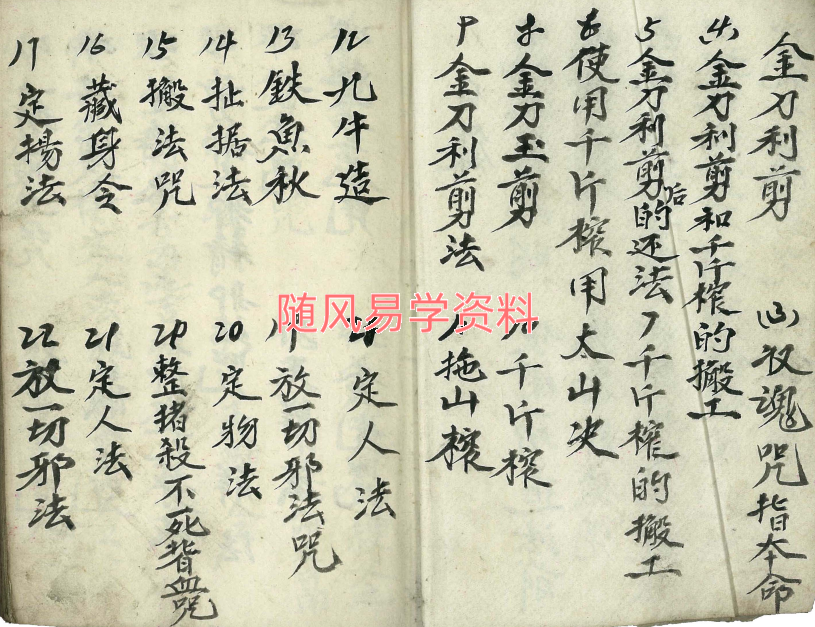 金刀利剪
(3)收魂咒指本命
(4)金刀利剪和千斤榨的搬工
5金刀利剪的后还法7千斤榨的搬工
6使用千斤榨用太山决
8金刀玉剪
10千斤榨
9金刀利剪法
11拖山榨
12九牛造
13鉄魚秋
14扯据法
15搬法咒
16藏身令
17定揚法
定人法
19放一切邪法咒
20定物法
整猪殺不死者血咒
21定人法
22放一切邪法
随风易学资料